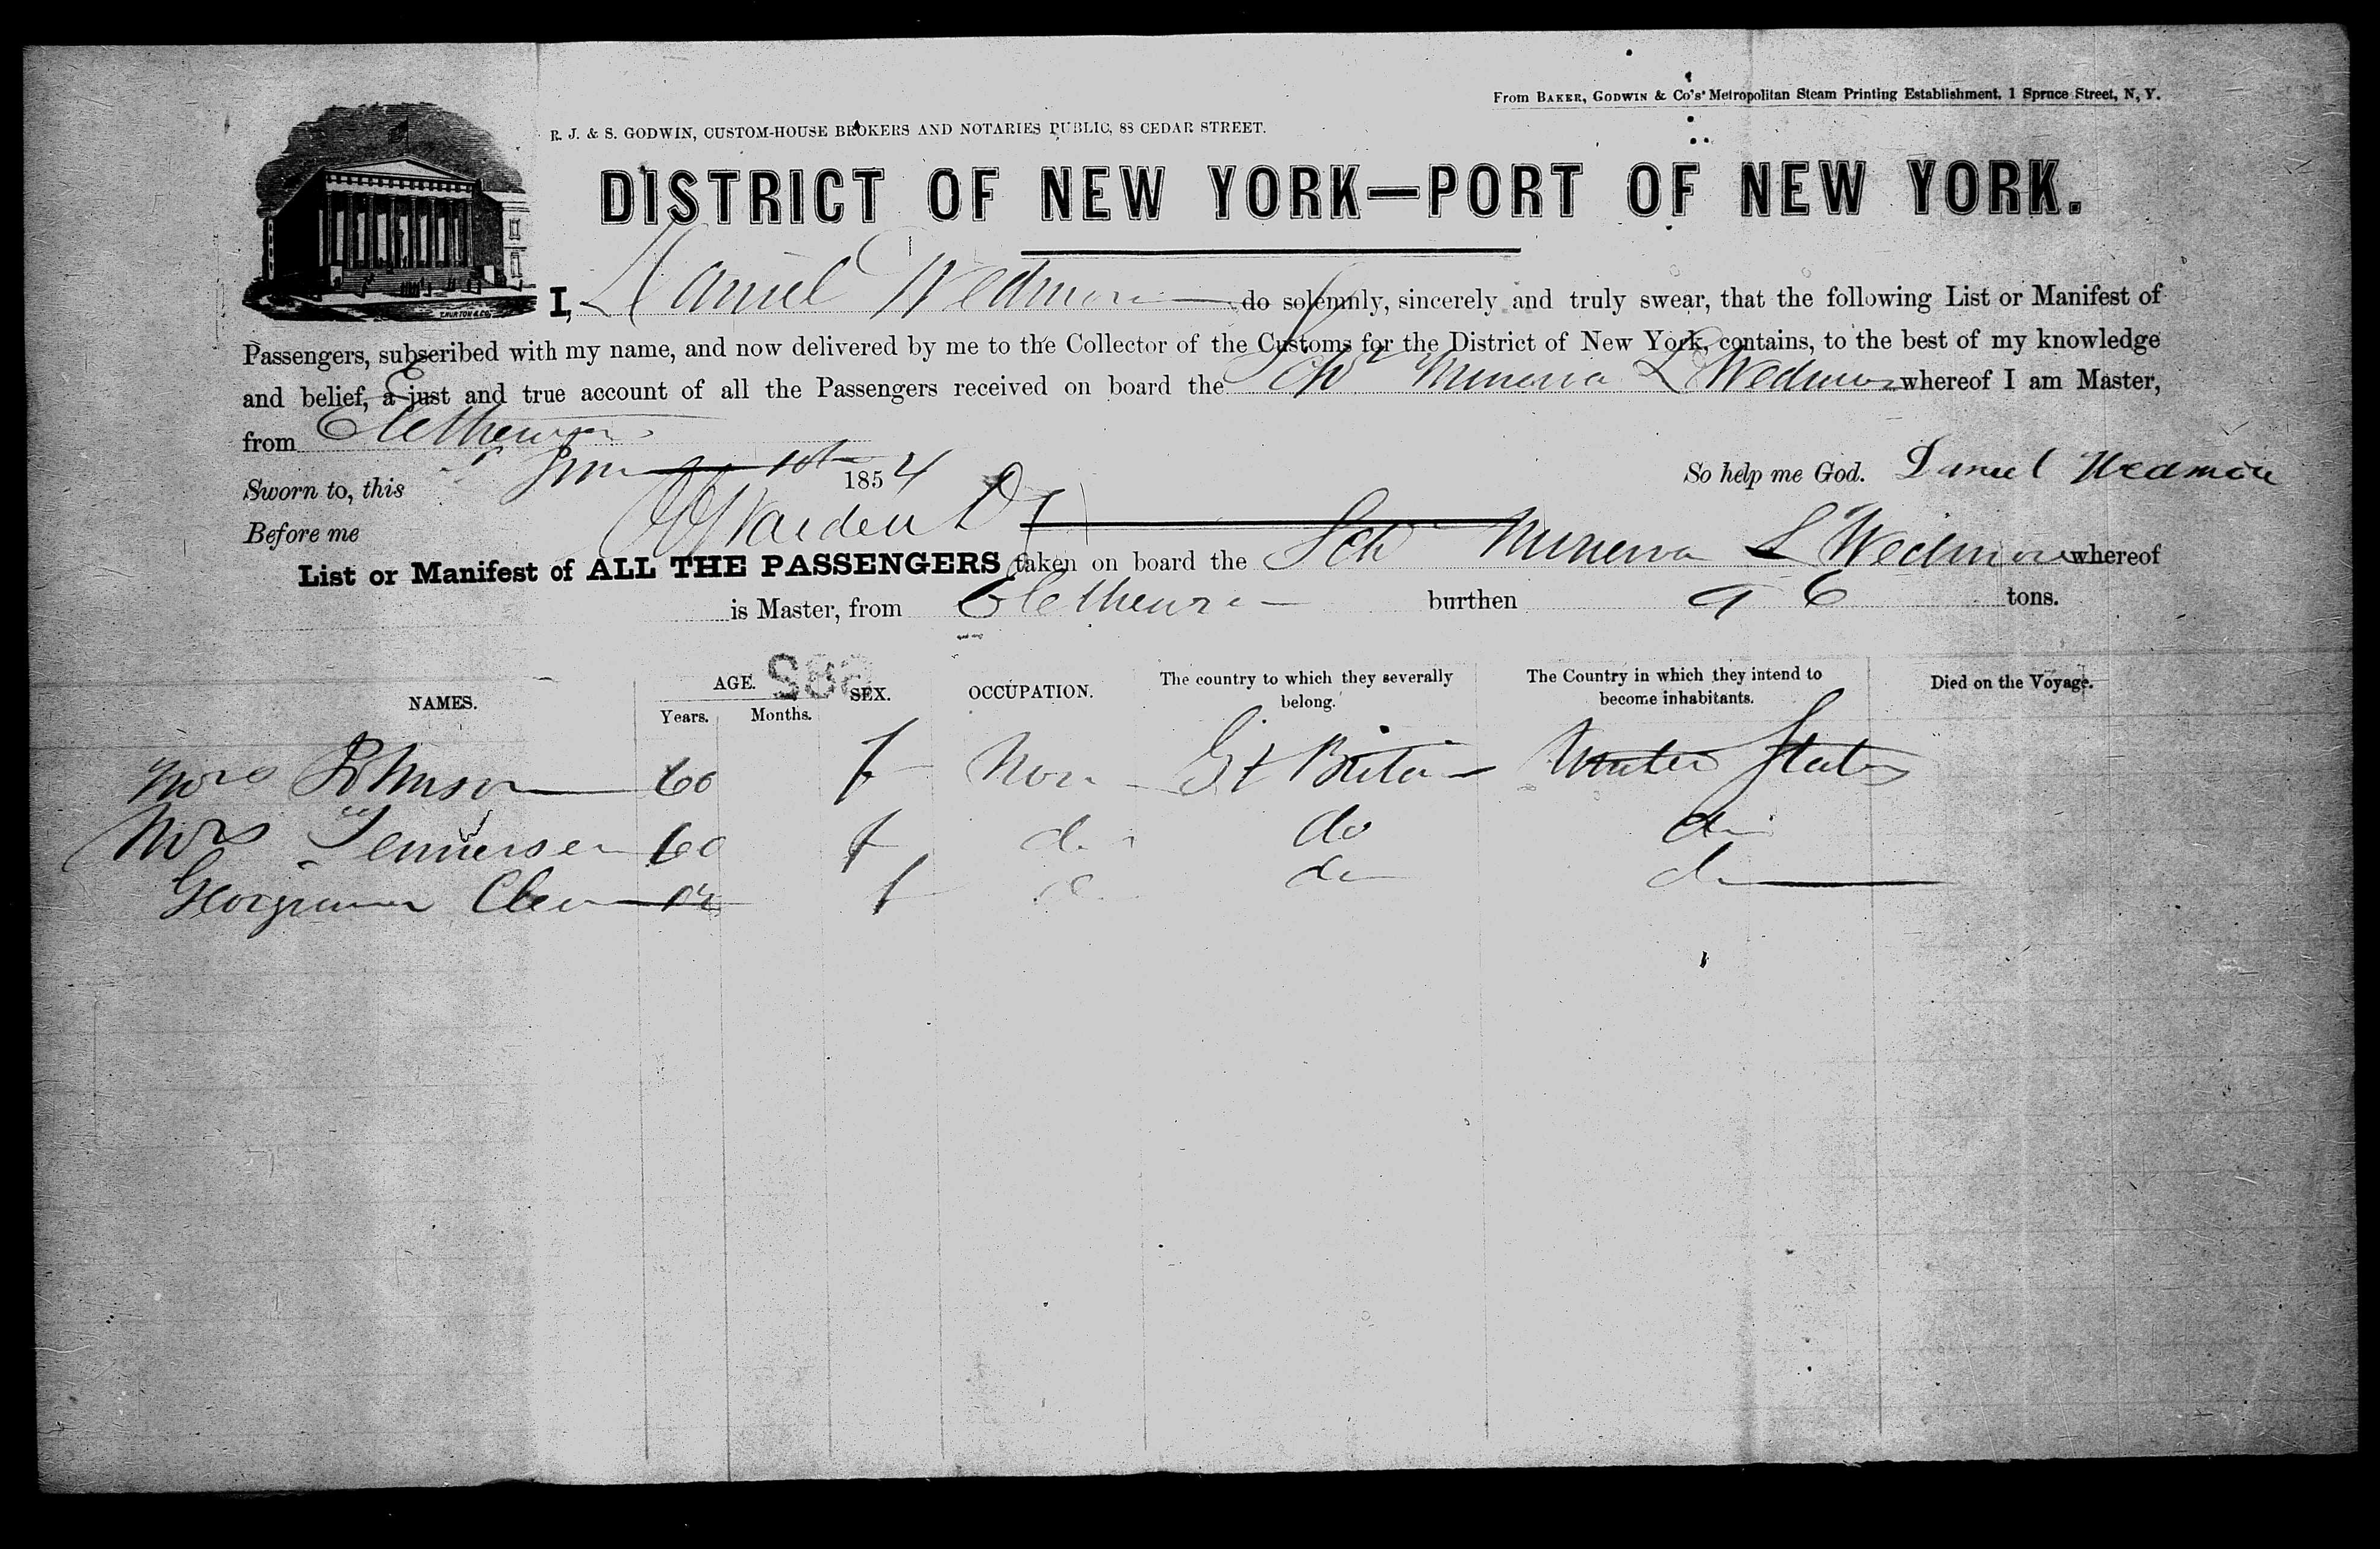 From BAKER, GODWIN & Co's' Metropolitan Steam Printing Establishment, 1 Spruce Street, N, Y.
R. J. & S. GODWIN, CUSTOM-HOUSE BROKERS AND NOTARIES PUBLIC, 88 CEDAR STREET.
DISTRICT OF NEW YORK—PORT OF NEW YORK.
I, Daniel Wedmore do solemnly, sincerely and truly swear, that the following List or Manifest of
Passengers, subscribed with my name, and now delivered by me to the Collector of the Customs for the District of New York, contains, to the best of my knowledge
and belief, a just and true account of all the Passengers received on board the Schr Minerva L Wedmore whereof I am Master,
from Eletheura
Sworn to, this June 10th 1854 So help me God. Daniel Wedmore
Before me
List or Manifest of ALL THE PASSENGERS taken on board the Schr Minerva L Wedmore whereof
is Master, from Eletheura burthen 96 tons.
NAMES. AGE. Years. Months. SEX. OCCUPATION. The country to which they severally belong. The Country in which they intend to become inhabitants. Died on the Voyage.
Mrs Johnson 60 f Non Gt Britain United States
Mrs 60 f do do do
f do do do